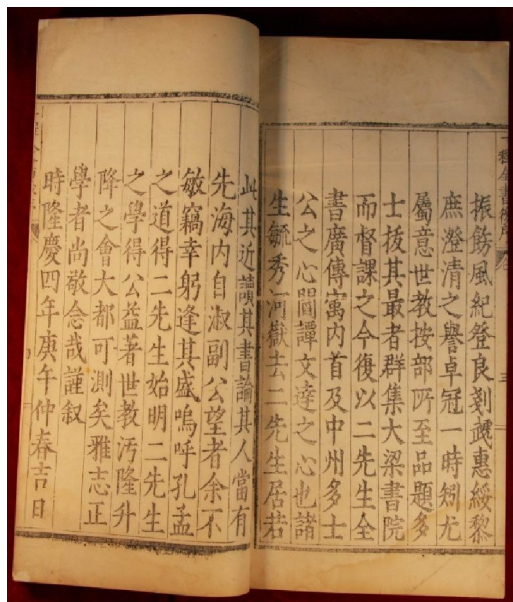 振飭風紀登良剗蠹惠綏黎
庶澄清之譽卓冠一時矧尤
屬意世教按部所至品題多
士拔其最者群集大梁書院
而督課之今復以二先生全
書廣傳寓內首及中州多士
公之心閩譚文達之心也諸
生毓秀河嶽去二先生居若
此其近讀其書論其人當有
先海內自淑副公望者余不
敏竊幸躬逢其盛嗚呼孔孟
之道得二先生始明二先生
之學得公益著世教汚隆升
降之會大都可測矣雅志正
學者尚敬念哉謹叙
時隆慶四年庚午仲春吉日